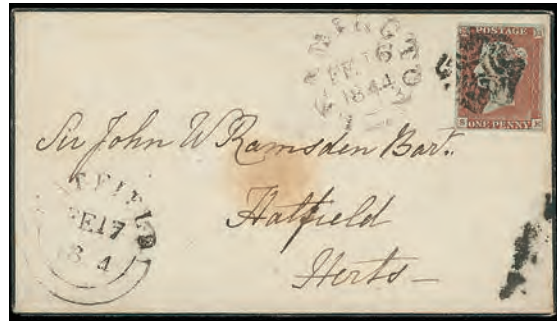 AMINGTO
FE 16
1844
POSTAGE
ONE PENNY
Sir John W Ramsden Bart.
Hatfield
Herts –
TFIELD
FE17